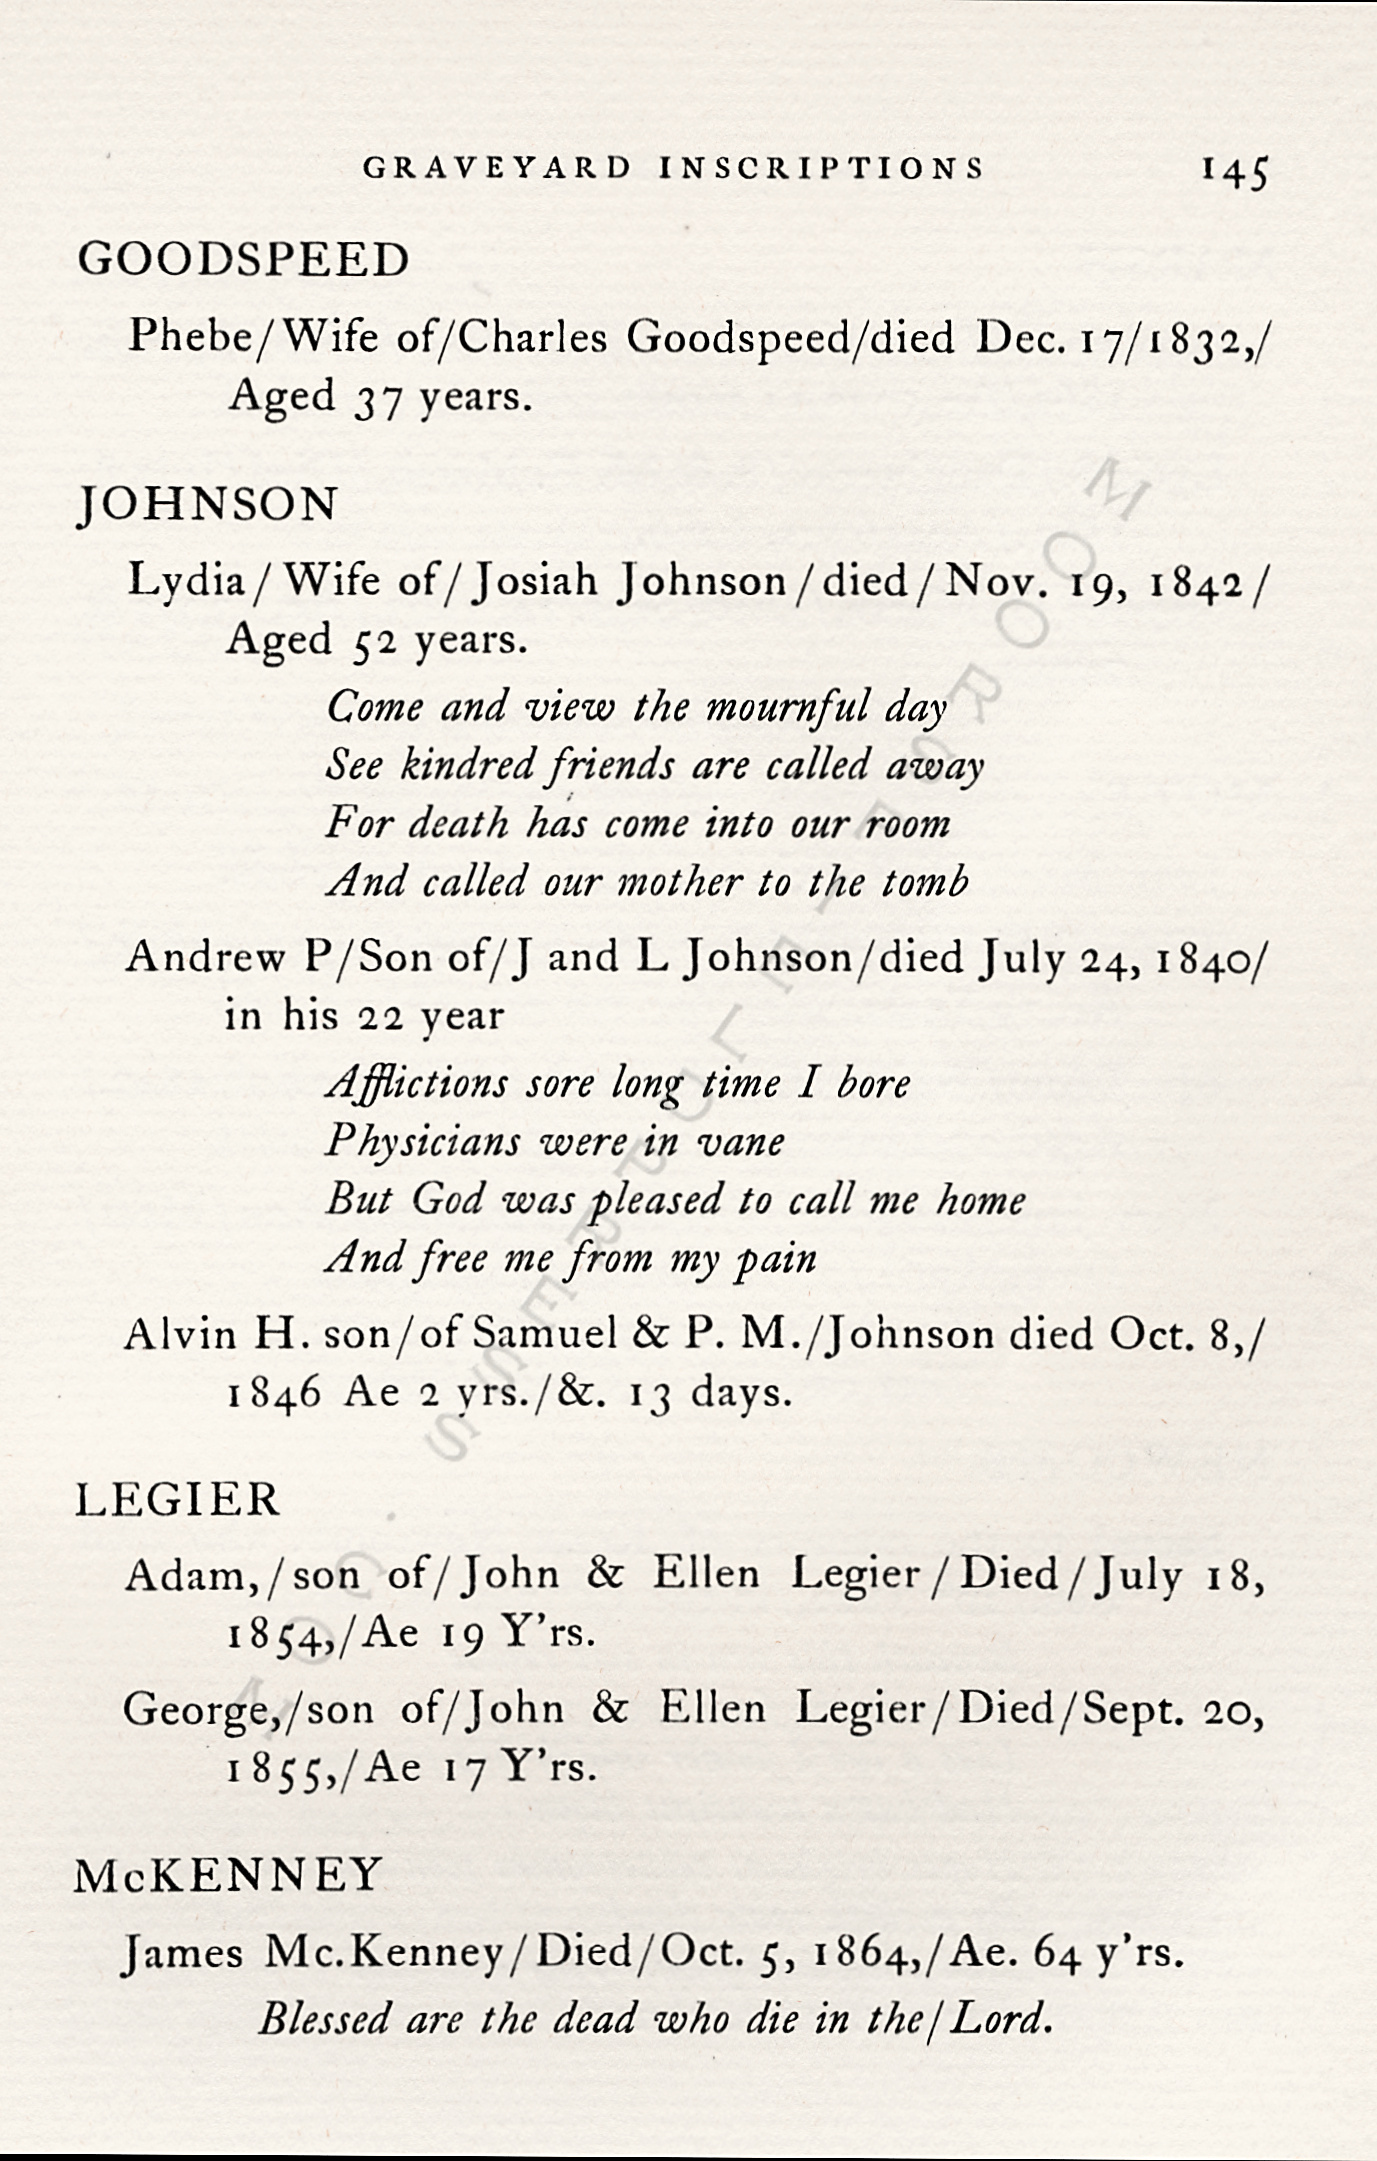 GRAVEYARD INSCRIPTIONS 145
GOODSPEED
Phebe/Wife of/Charles Goodspeed/died Dec. 17/1832,/
Aged 37 years.
JOHNSON
Lydia/Wife of/Josiah Johnson/died/Nov. 19, 1842/
Aged 52 years.
Come and view the mournful day
See kindred friends are called away
For death has come into our room
And called our mother to the tomb
Andrew P/Son of/J and L Johnson/died July 24, 1840/
in his 22 year
Afflictions sore long time I bore
Physicians were in vane
But God was pleased to call me home
And free me from my pain
Alvin H. son/of Samuel & P. M./Johnson died Oct. 8,/
1846 Ae 2 yrs./&. 13 days.
LEGIER
Adam,/son of/John & Ellen Legier/Died/July 18,
1854,/Ae 19 Y'rs.
George,/son of/John & Ellen Legier/Died/Sept. 20,
1855,/Ae 17 Y'rs.
McKENNEY
James Mc.Kenney/Died/Oct. 5, 1864,/Ae. 64 y'rs.
Blessed are the dead who die in the/Lord.